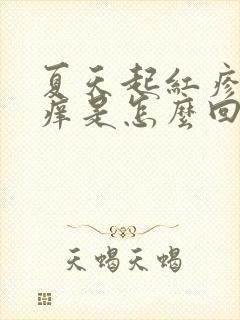 夏天起紅疹
痒是怎麼回
天蝎天蝎